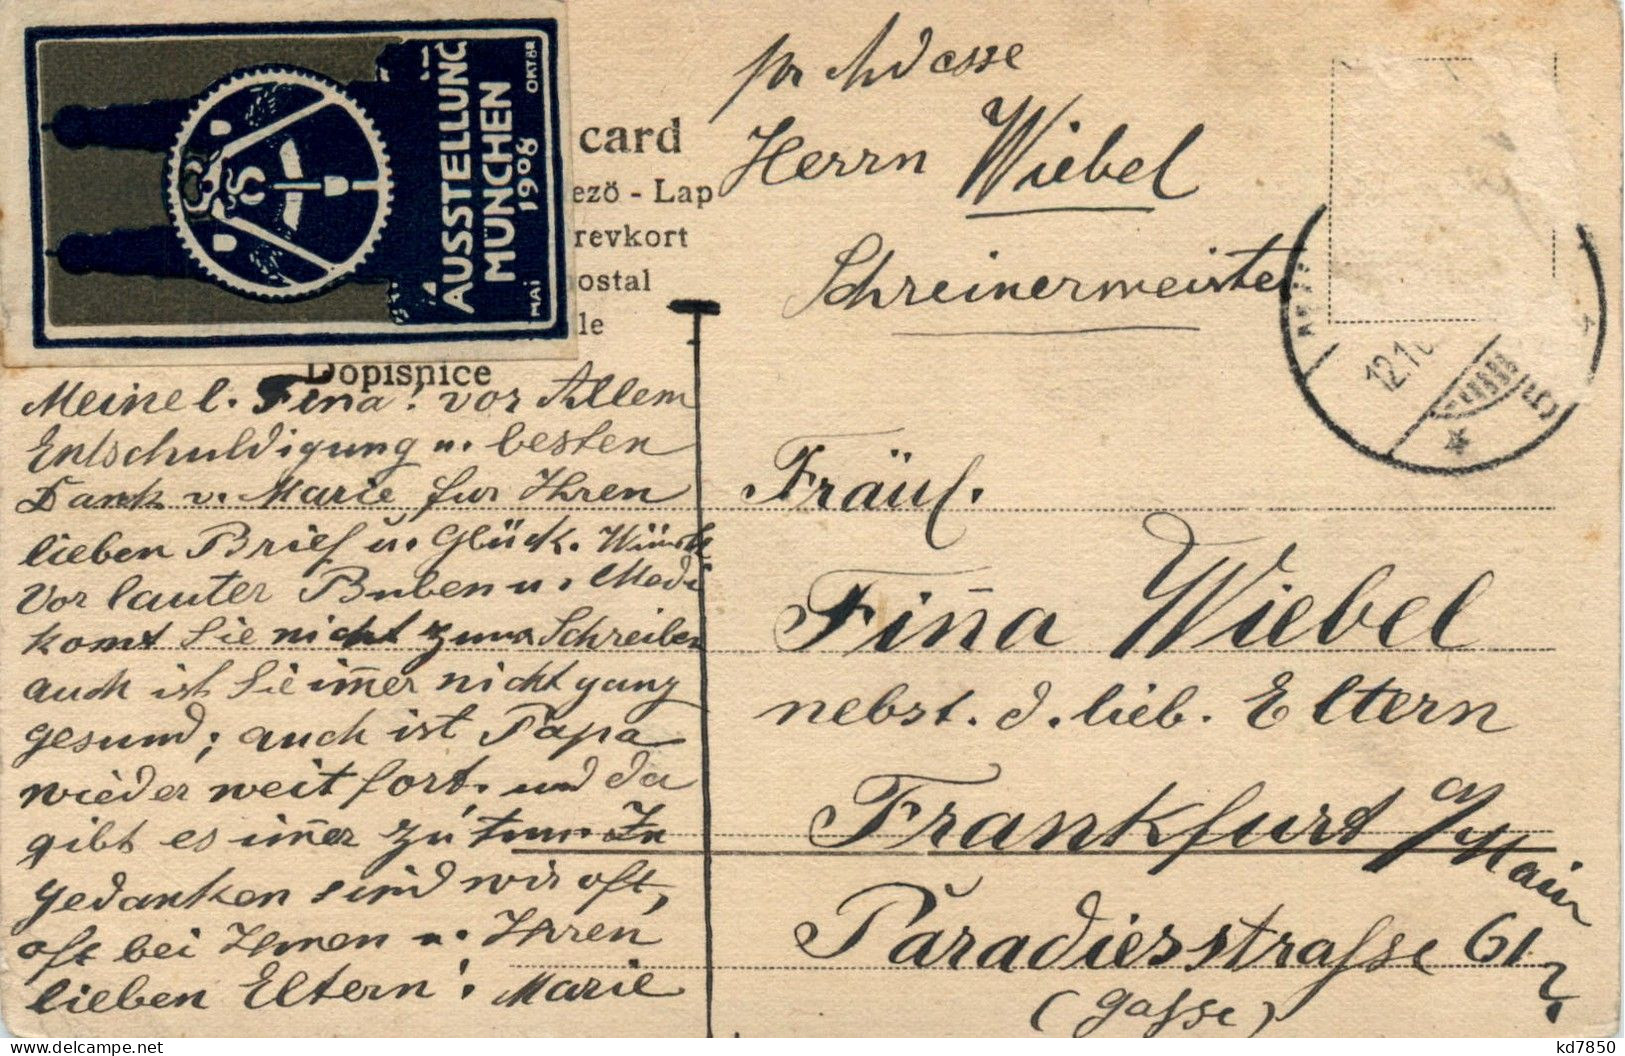 AUSSTELLUNG
MÜNCHEN
1908
MAI
OKTBR
card
ezö - Lap
revkort
ostal
le
Dopisnice
Meine l. Fina! vor Allem
Entschuldigung u. besten
Dank v. Marie fur Ihren
lieben Brief u. Glück. Wünsch
Vor lauter Buben u. Mädi
komt Sie nicht zum Schreiben
auch ist Sie im̄er nicht ganz
gesund; auch ist Papa
wieder weit fort. und da
gibt es im̄er zu tun. In
Gedanken sind wir oft,
oft bei Ihnen u. Ihren
lieben Eltern! Marie
pr Adesse
Herrn Wiebel
Schreinermeister
12.1
Fräul.
Fin̄a Wiebel
nebst. d. lieb. Eltern
Frankfurt a/Main
Paradiesstrasse 61
(gasse) ?
kd7850